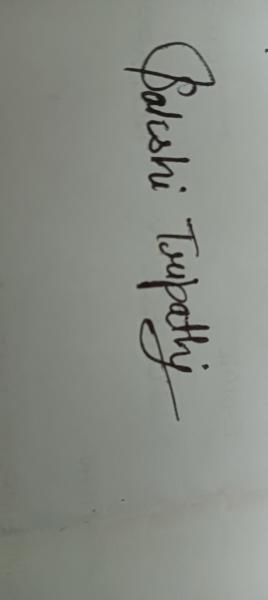 Sakshi Tripathi